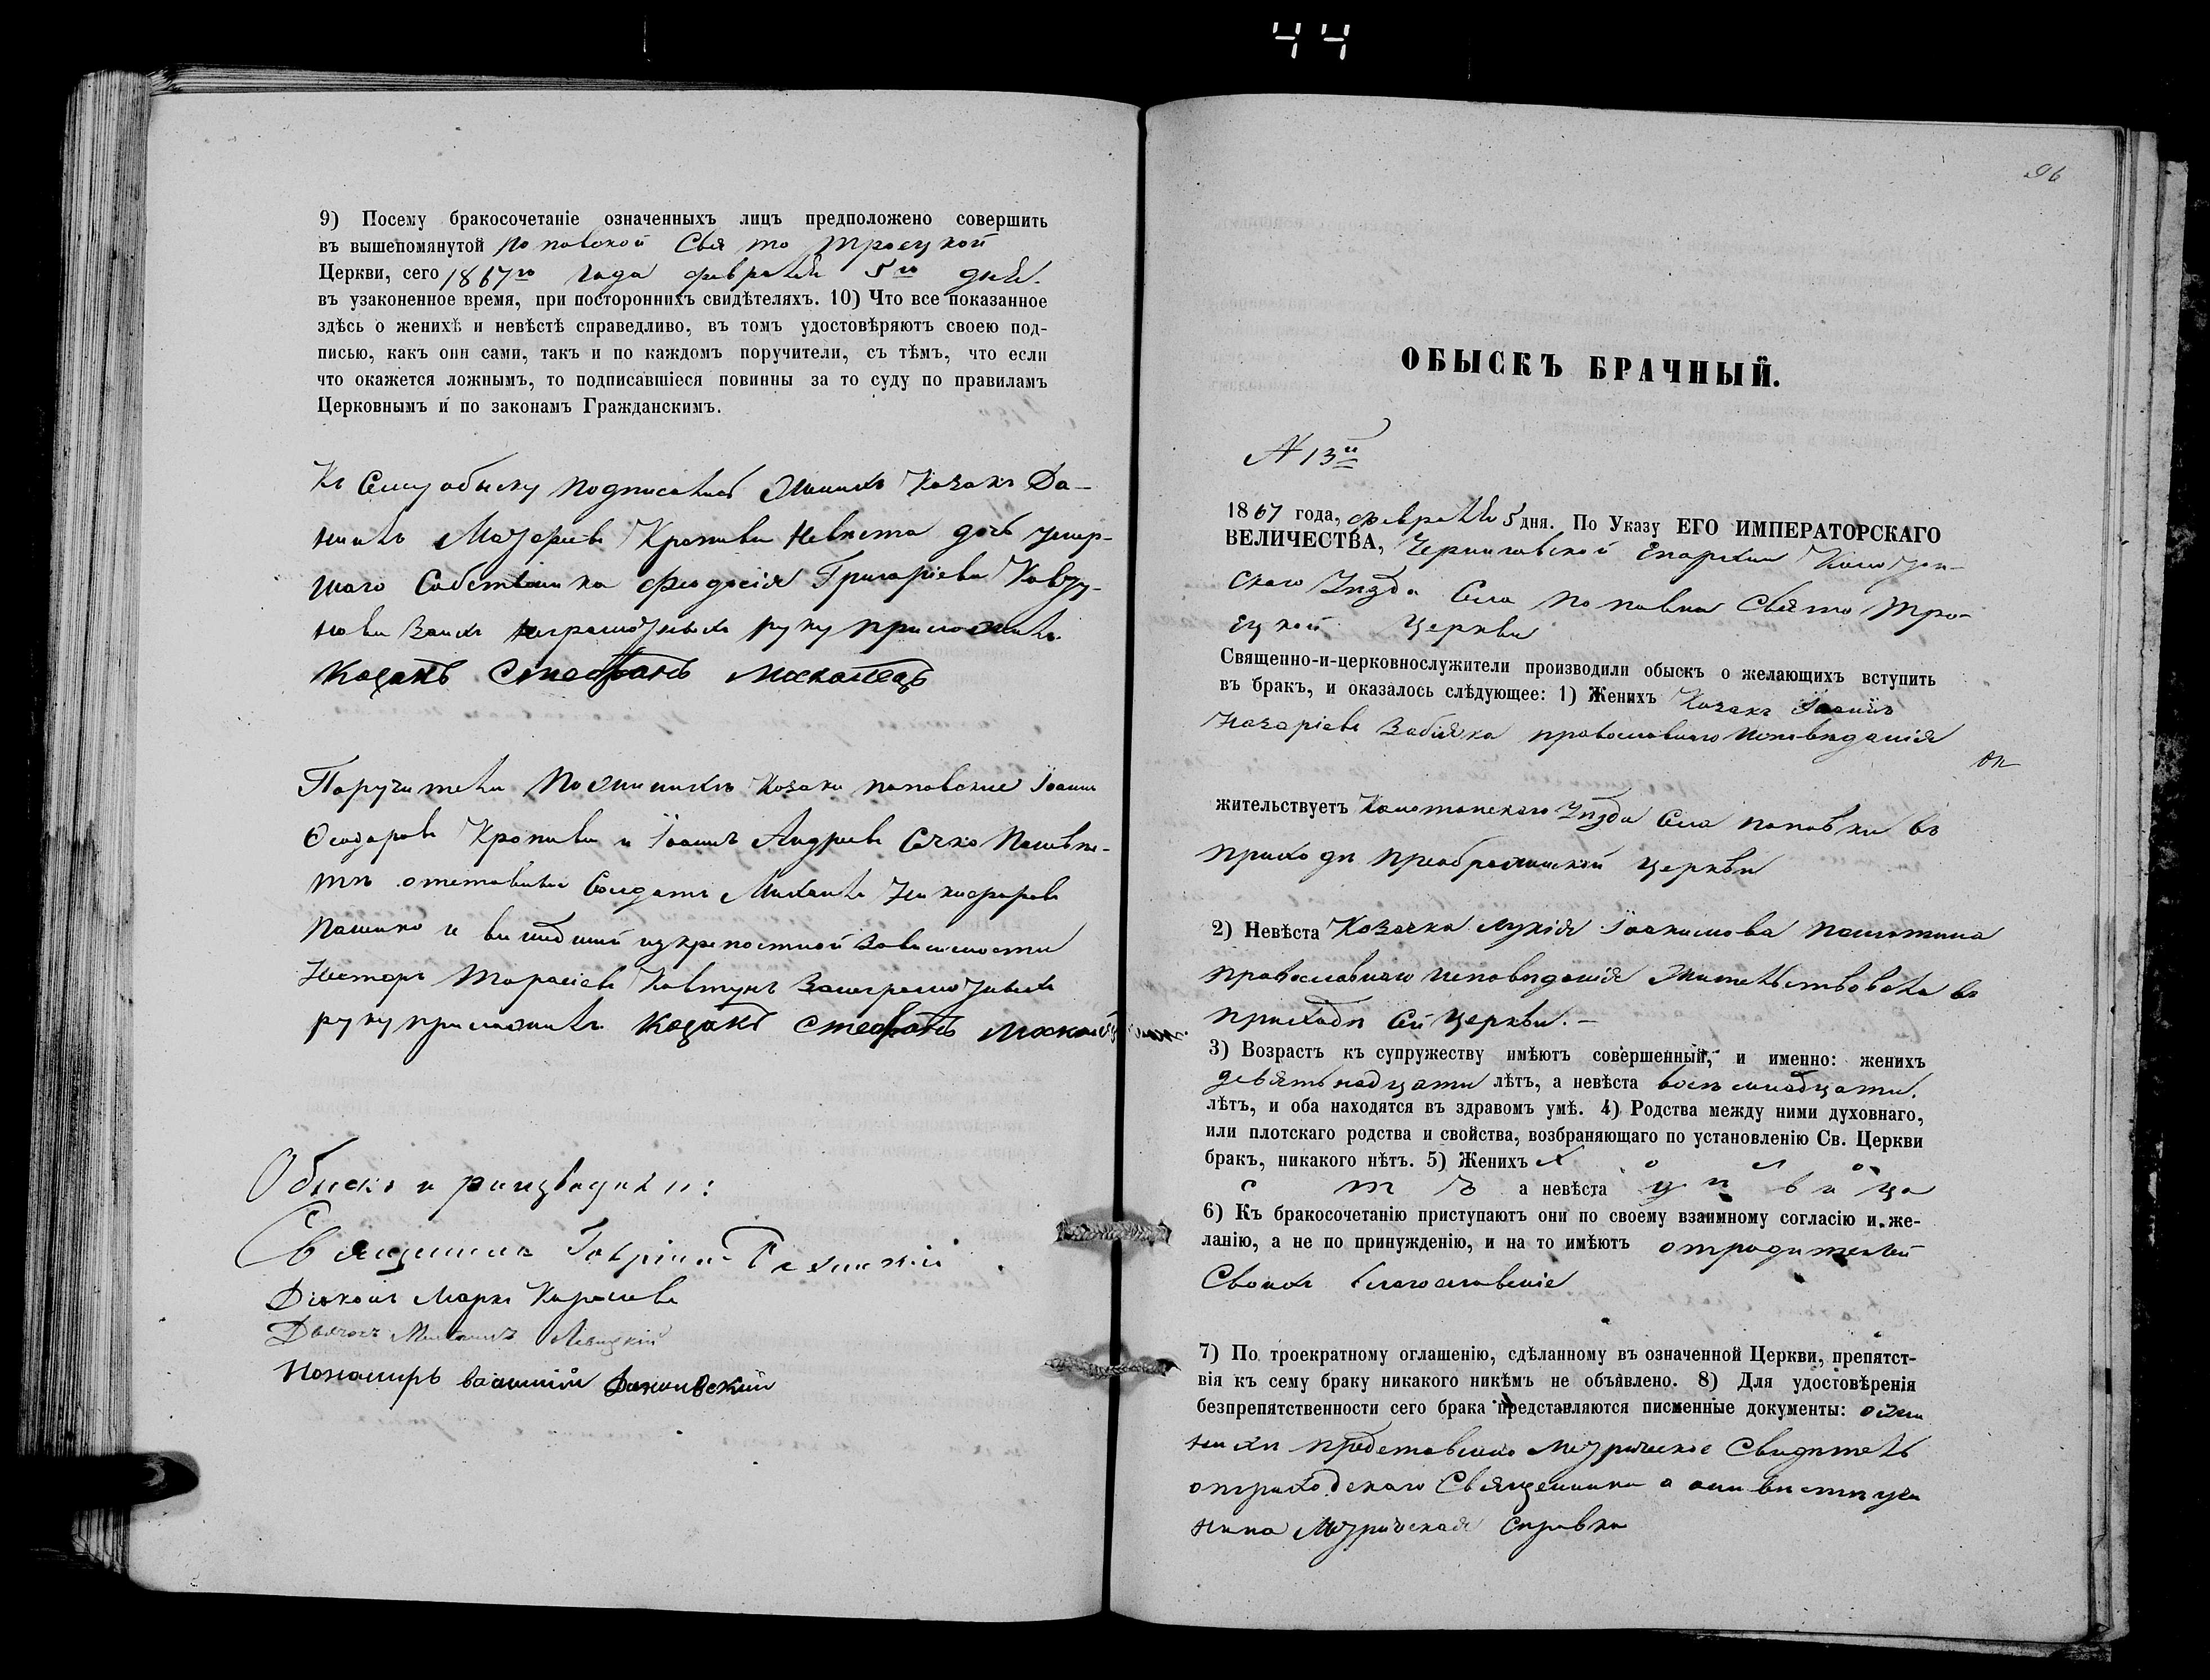 44
9) Посему бракосочетаніе означенныхъ лицъ предположено совершить
въ вышепомянутой Поповской Свято Троецкой
Церкви, сего 1867го года февраля 5го дня.
въ узаконенное время, при постороннихъ свидѣтеляхъ. 10) Что все показанное
здѣсь о женихѣ и невѣстѣ справедливо, въ томъ удостовѣряютъ своею под-
писью, какъ они сами, такъ и по каждомъ поручители, съ тѣмъ, что если
что окажется ложнымъ, то подписавшіеся повинны за то суду по правиламъ
Церковнымъ и по законамъ Гражданскимъ.
Къ сему обыску подписались Женихъ Козакъ Да-
нилъ Назарьевъ Кропива Невѣста дочь умер-
шаго Собственика Феодосія Григоріева Ковту-
нова За ихъ неграмотныхъ руку приложилъ
Козакъ Стефанъ Москалецъ
Поручители По Женихѣ Козаки поповские Іоаннъ
Феодоровъ Кропива и Іоаннъ Андреевъ Сачко По невѣс-
тѣ отставный Солдатъ Михаилъ Никифоровъ
Пашко и вышедший изкрепостной зависимости
Несторъ Тарасіевъ Ковтунъ За неграмотныхъ
руку приложилъ Козакъ Стефанъ
Обыскъ производили:
Священникъ
Діаконъ Маркъ
Дьячокъ Михаилъ Левицкій
Пономарь
96
ОБЫСКЪ БРАЧНЫЙ.
N 13й
1867 года, февраля 5 дня. По Указу ЕГО ИМПЕРАТОРСКАГО
ВЕЛИЧЕСТВА, Черниговской Епархии Конотоп-
скаго Уѣзда Села Поповки Свято Тро-
ецкой Церкви
Священно-и-церковнослужители производили обыскъ о желающихъ вступить
въ бракъ, и оказалось слѣдующее: 1) Женихъ Козакъ Іоаннъ
Назаріевъ Забіяка православнаго исповѣданія
жительствуетъ Конотопскаго Уѣзда Села Поповки въ
приходѣ Преображенской Церкви
2) Невѣста Козачка Лукія Іоакимова
православнаго исповѣданія Жительствовала въ
приходѣ Сей Церкви. —
3) Возрастъ къ супружеству имѣютъ совершенный, и именно: женихъ
девятьнадцати лѣтъ, а невѣста восемнадцати.
лѣтъ, и оба находятся въ здравомъ умѣ. 4) Родства между ними духовнаго,
или плотскаго родства и свойства, возбраняющаго по установленію Св. Церкви
бракъ, никакого нѣтъ. 5) Женихъ х о л о
с т ъ а невѣста д ѣ в и ца
6) Къ бракосочетанію приступаютъ они по своему взаимному согласію и же-
ланію, а не по принужденію, и на то имѣютъ отродителей
Своихъ благословеніе
7) По троекратному оглашенію, сдѣланному въ означенной Церкви, препятст-
вія къ сему браку никакого никѣмъ не объявлено. 8) Для удостовѣренія
безпрепятственности сего брака представляются писменные документы: ожe
нихѣ представлено Метрическое Свидѣтель
отприходскаго Священника а оневѣстѣ учи
нена Метрическая справка